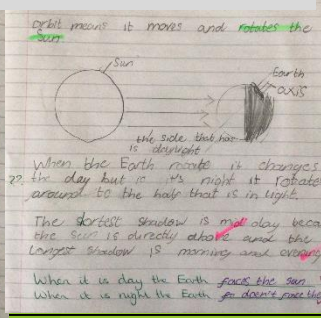 orbit means it moves and rotates the
sun
Sun
Earth
axis
the side that has
is daylight
When the Earth rotate it changes
the day but it's night it rotate
around to the half that is in light.
The shortest shadow is mid day beca
the sun is directly above and the
longest shadow is morning and evening
When it is day the Earth faces the sun
When it is night the Earth doesn't face the